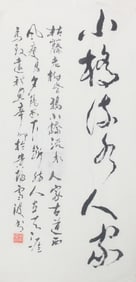 小橋流水人家
枯藤老樹昏鴉小橋流水人家古道西
風瘦馬夕陽西下斷腸人在天涯
馬致遠秋思